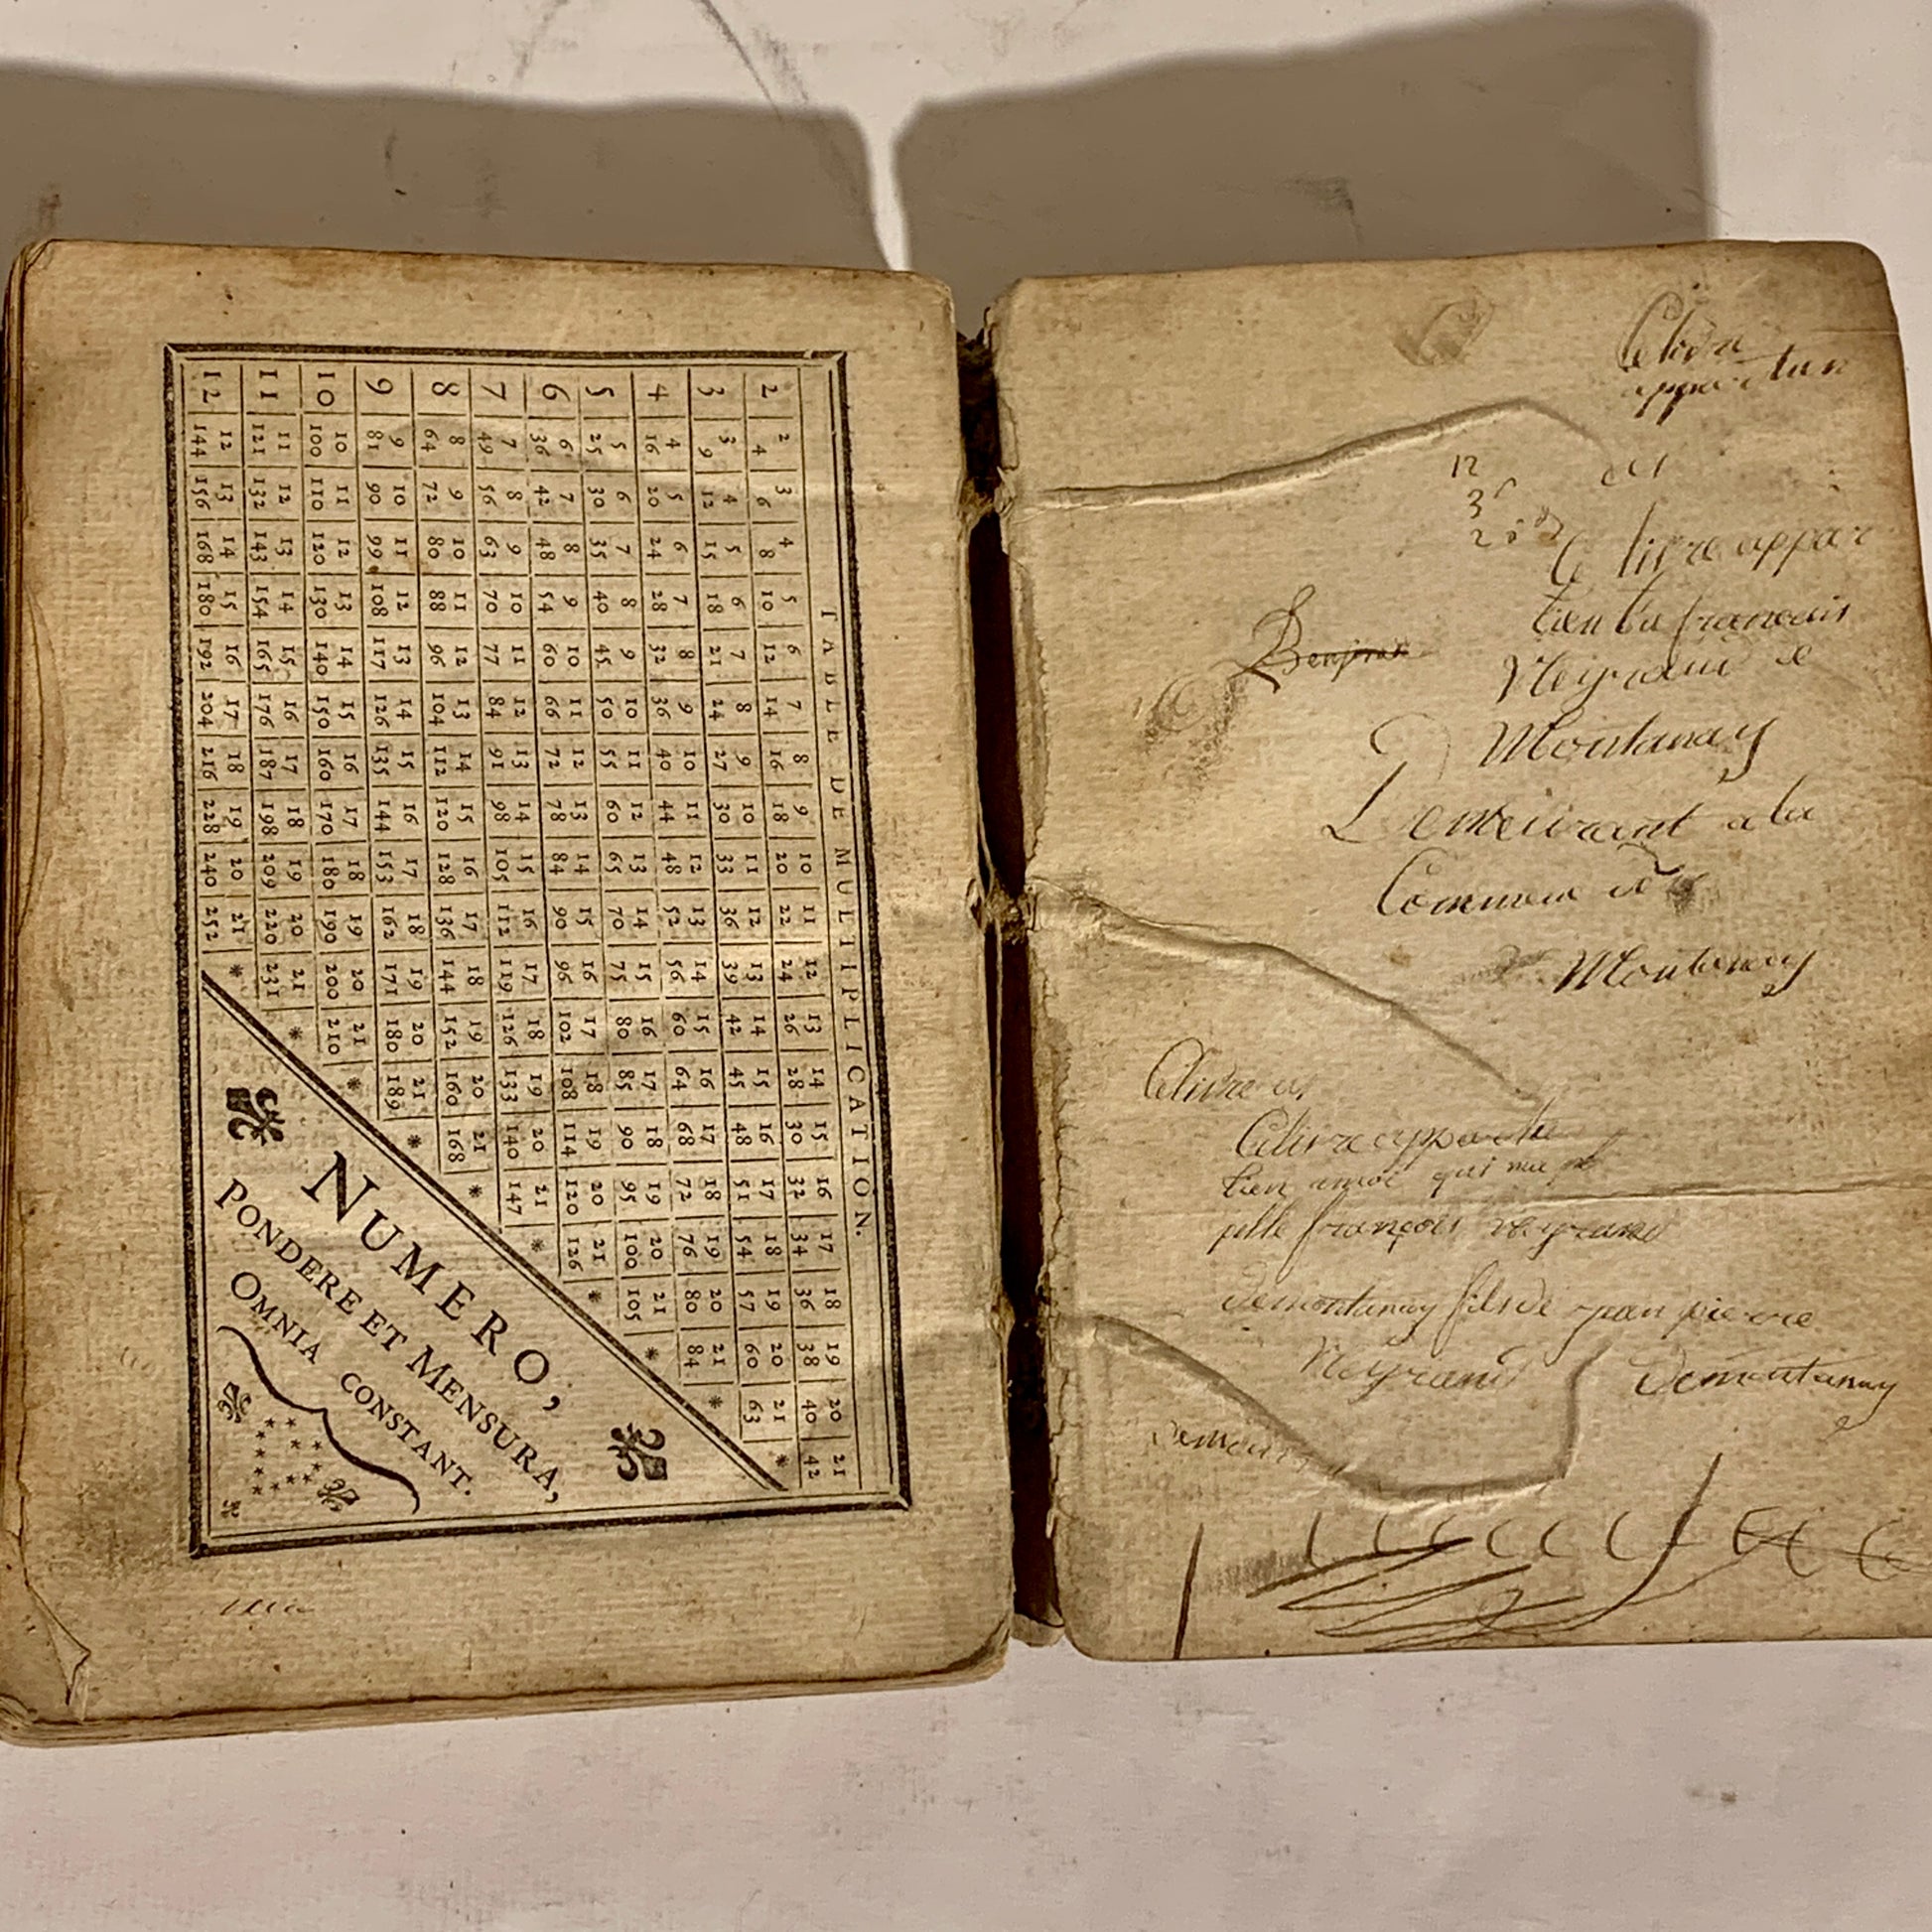 TABLE DE MULTIPLICATION.
2 | 2 4 | 3 6 | 4 8 | 5 10 | 6 12 | 7 14 | 8 16 | 9 18 | 10 20 | 11 22 | 12 24 | 13 26 | 14 28 | 15 30 | 16 32 | 17 34 | 18 36 | 19 38 | 20 40 | 21 42
3 | 3 9 | 4 12 | 5 15 | 6 18 | 7 21 | 8 24 | 9 27 | 10 30 | 11 33 | 12 36 | 13 39 | 14 42 | 15 45 | 16 48 | 17 51 | 18 54 | 19 57 | 20 60 | 21 63 | *
4 | 4 16 | 5 20 | 6 24 | 7 28 | 8 32 | 9 36 | 10 40 | 11 44 | 12 48 | 13 52 | 14 56 | 15 60 | 16 64 | 17 68 | 18 72 | 19 76 | 20 80 | 21 84 | *
5 | 5 25 | 6 30 | 7 35 | 8 40 | 9 45 | 10 50 | 11 55 | 12 60 | 13 65 | 14 70 | 15 75 | 16 80 | 17 85 | 18 90 | 19 95 | 20 100 | 21 105 | *
6 | 6 36 | 7 42 | 8 48 | 9 54 | 10 60 | 11 66 | 12 72 | 13 78 | 14 84 | 15 90 | 16 96 | 17 102 | 18 108 | 19 114 | 20 120 | 21 126 | *
7 | 7 49 | 8 56 | 9 63 | 10 70 | 11 77 | 12 84 | 13 91 | 14 98 | 15 105 | 16 112 | 17 119 | 18 126 | 19 133 | 20 140 | 21 147 | *
8 | 8 64 | 9 72 | 10 80 | 11 88 | 12 96 | 13 104 | 14 112 | 15 120 | 16 128 | 17 136 | 18 144 | 19 152 | 20 160 | 21 168 | *
9 | 9 81 | 10 90 | 11 99 | 12 108 | 13 117 | 14 126 | 15 135 | 16 144 | 17 153 | 18 162 | 19 171 | 20 180 | 21 189 | *
10 | 10 100 | 11 110 | 12 120 | 13 130 | 14 140 | 15 150 | 16 160 | 17 170 | 18 180 | 19 190 | 20 200 | 21 210 | *
11 | 11 121 | 12 132 | 13 143 | 14 154 | 15 165 | 16 176 | 17 187 | 18 198 | 19 209 | 20 220 | 21 231 | *
12 | 12 144 | 13 156 | 14 168 | 15 180 | 16 192 | 17 204 | 18 216 | 19 228 | 20 240 | 21 252 | *
NUMERO,
PONDERE ET MENSURA,
OMNIA CONSTANT.
12
3
Ce livre appar
tien ta francois
Neyrand de
Montanay
Demeurant a la
Commun de
Montanay
Celivre
Celivre apparte
tien amoi qui
françois neyrand
demontanay fils de jean pierre
Neyrand Demontanay